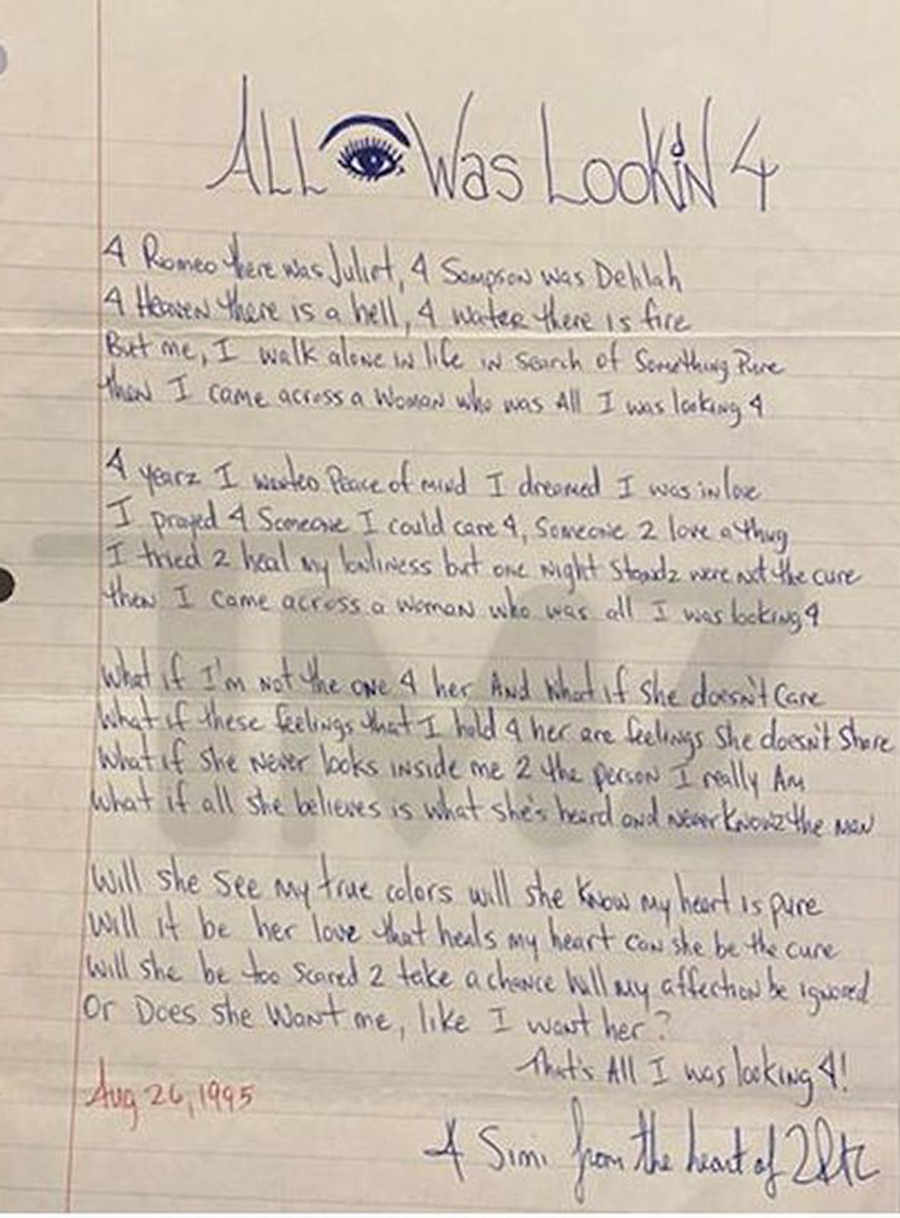 ALL 👁 Was Lookin 4
4 Romeo there was Juliet, 4 Sampson was Delilah
4 Heaven there is a hell, 4 water there is fire
But me, I walk alone in life in search of Something Pure
then I came across a Woman who was All I was looking 4
4 yearz I wanted Peace of mind I dreamed I was in love
I prayed 4 Someone I could care 4, Someone 2 love a thug
I tried 2 heal my lonliness but one night Standz were not the cure
then I came across a woman who was all I was looking 4
What if I'm not the one 4 her And What if she doesn't Care
What if these feelings that I hold 4 her are feelings She doesn't Share
What if She Never looks inside me 2 the person I really Am
What if all she believes is what she's heard and never Knowz the man
Will she See my true colors will she Know my heart is pure
Will it be her love that heals my heart can she be the cure
Will she be too Scared 2 take a chance Will my affection be ignored
Or Does she Want me, like I want her?
That's All I was looking 4!
Aug 26, 1995
4 Simi from the heart of 2Pac
TMZ